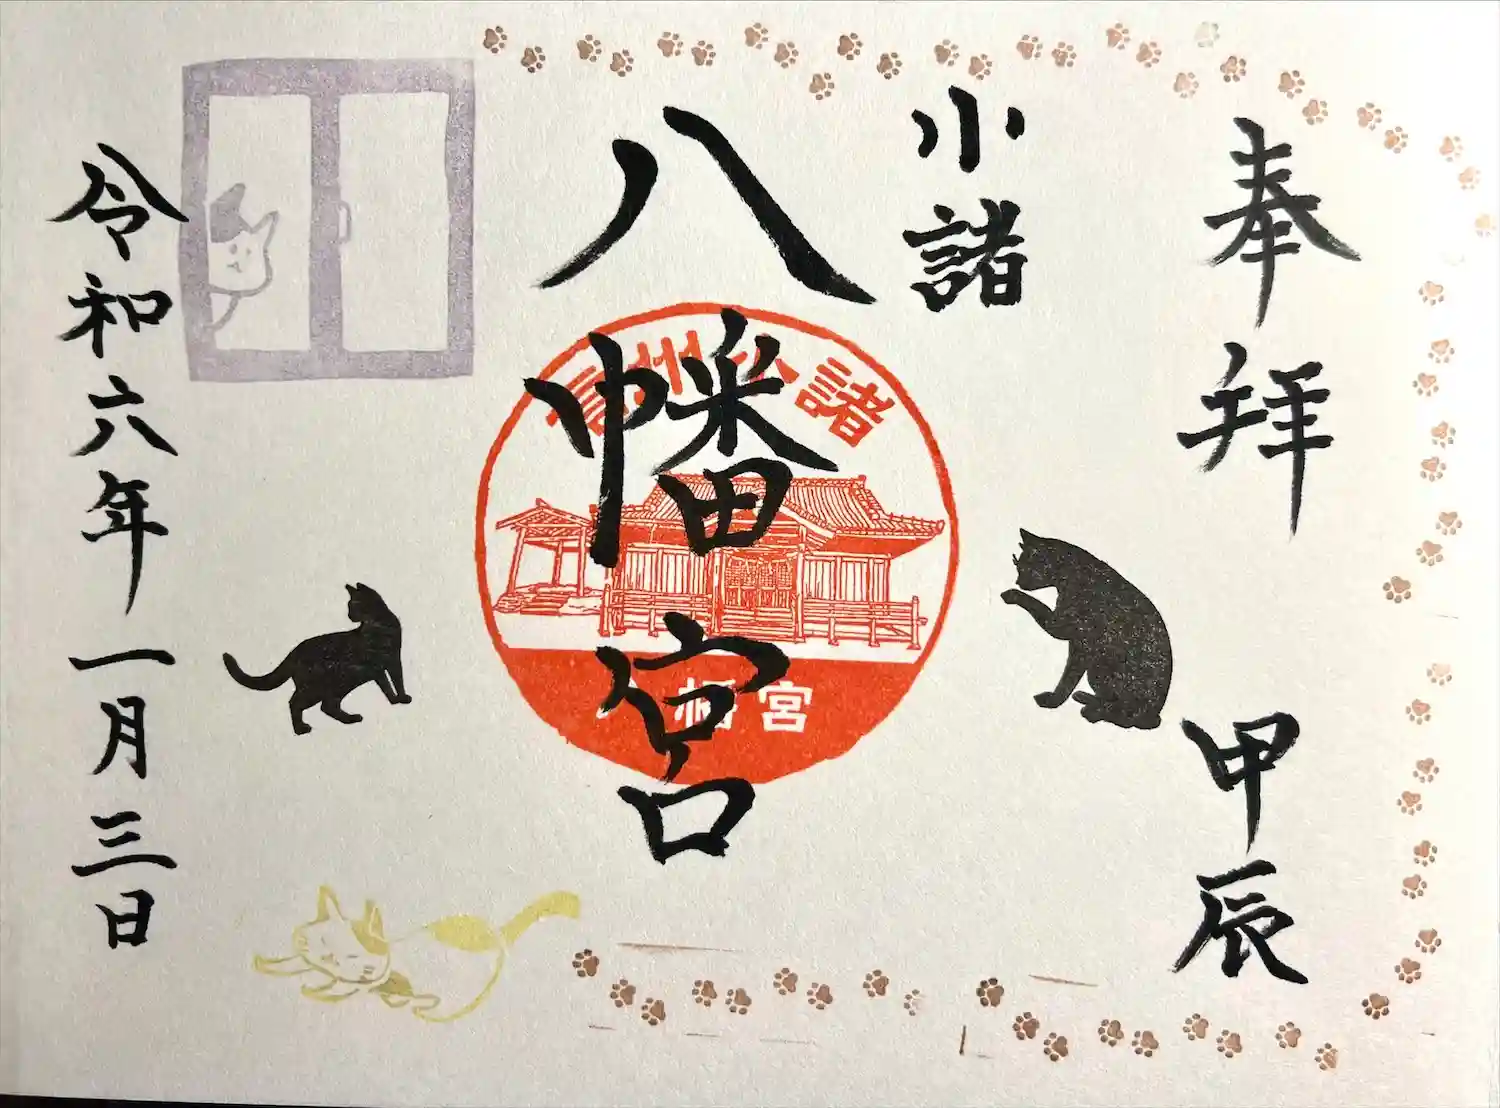 奉拝
甲辰
小諸
八幡宮
信州小諸
八幡宮
令和六年一月三日